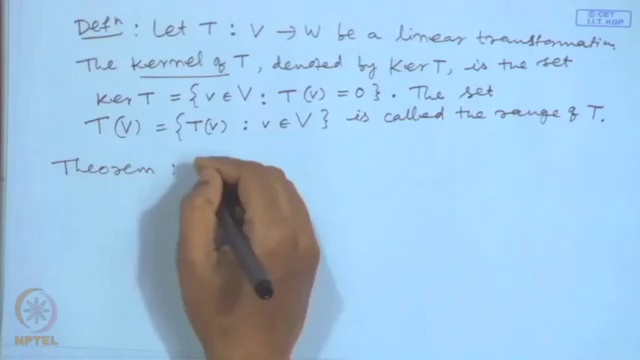 © CET
I.I.T. KGP
Defn : Let T : V → W be a linear transformation
The Kernel of T, denoted by Ker T, is the set
Ker T = { v ∈ V : T(v) = 0 } . The set
T(V) = { T(v) : v ∈ V } is called the range of T.
Theorem :
NPTEL